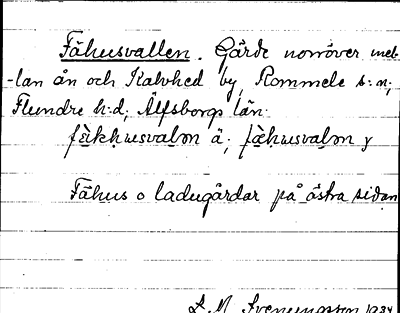 Fähusvallen. Gärde norröver mel-
-lan ån och Kalvhed by, Rommele s:n;
Flundre h:d; Älfsborgs län.
fèkhusvalən ä; fæ̀husvalən y
Fähus o ladugårdar på östra sidan